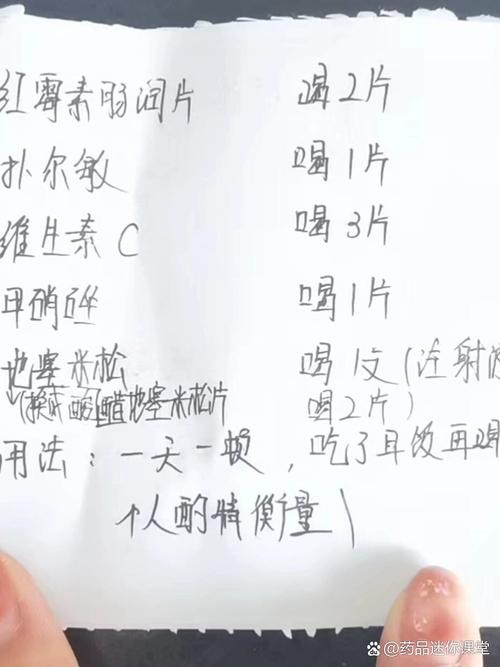 红霉素肠润片 喝2片
扑尔敏 喝1片
维生素C 喝3片
甲硝唑 喝1片
地塞米松 喝1支(注射液
(换成醋酸地塞米松片 喝2片)
用法:一天一顿,吃了早饭再喝
个人酌情衡量
药品迷你课堂